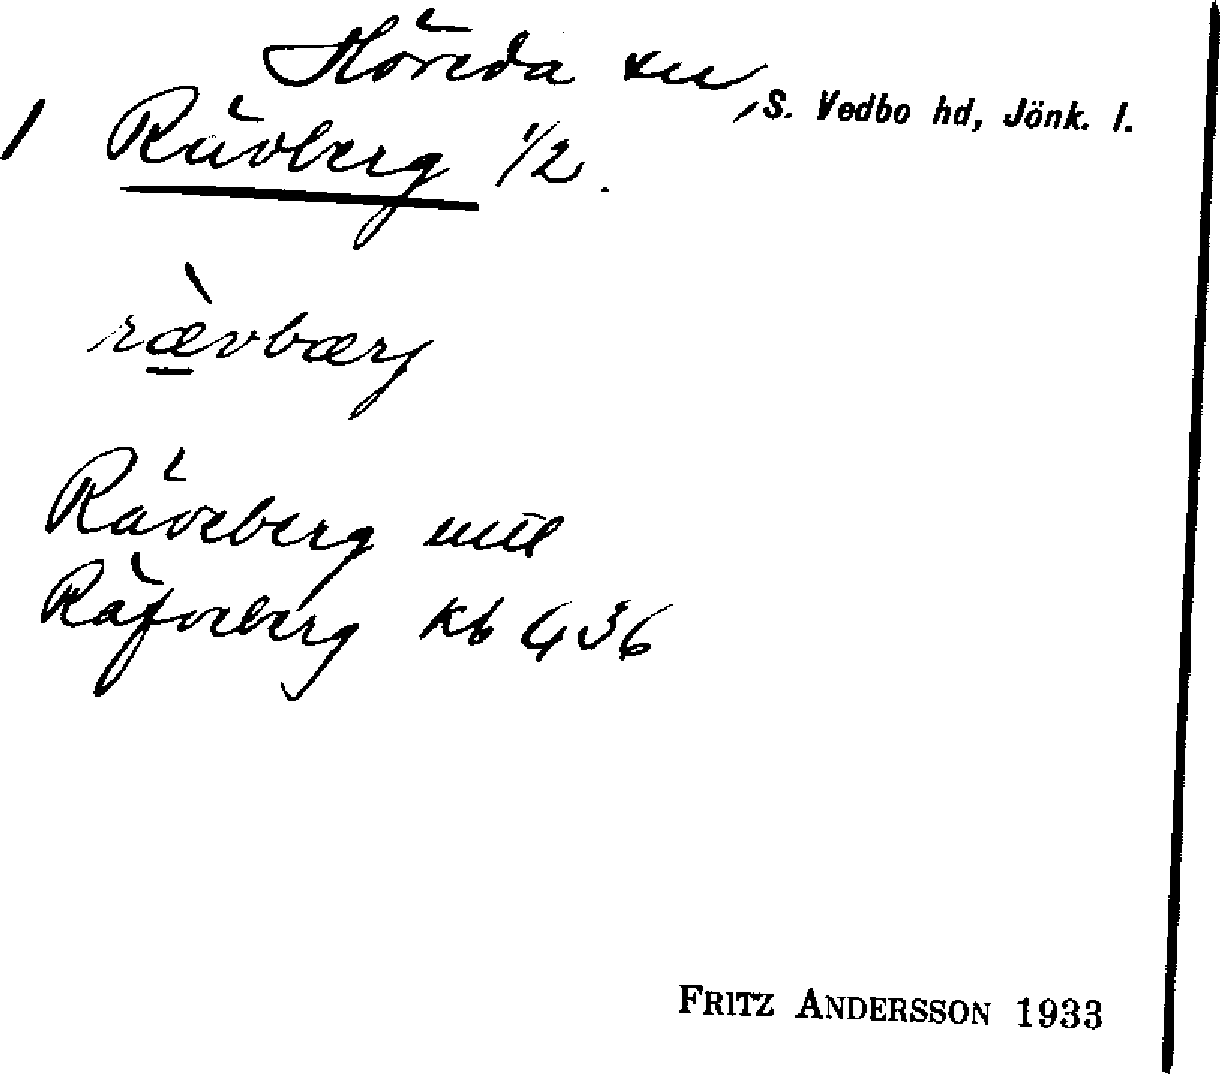 Höreda sn, S. Vedbo hd, Jönk. l.
1 Rävberg 1/2.
rævbærj
Räveberg
Räfveberg kb 436
FRITZ ANDERSSON 1933